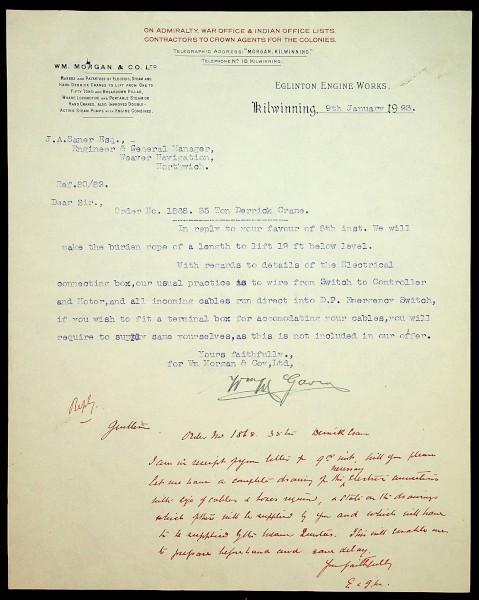 ON ADMIRALTY, WAR OFFICE & INDIAN OFFICE LISTS.
CONTRACTORS TO CROWN AGENTS FOR THE COLONIES.
TELEGRAPHIC ADDRESS: "MORGAN, KILWINNING."
TELEPHONE Nº 18 KILWINNING.
WM. MORGAN & CO. LTD
MAKERS AND PATENTEES OF ELECTRIC, STEAM AND
HAND DERRICK CRANES TO LIFT FROM ONE TO
FIFTY TONS AND BREAKDOWN PILLAR,
WHARF LOCOMOTIVE AND PORTABLE STEAM OR
HAND CRANES. ALSO IMPROVED DOUBLE-
ACTING STEAM PUMPS WITH ENGINE COMBINED.
EGLINTON ENGINE WORKS.
Kilwinning, 9th January 1923.
J.A.Saner Esq.,
Engineer & General Manager,
Weaver Navigation,
Northwich.
Ref.80/82.
Dear Sir.,
Order No. 1868. 35 Ton Derrick Crane.
In reply to your favour of 8th inst. We will
make the burden rope of a length to lift 12 ft below level.
With regards to details of the Electrical
connecting box,our usual practice is to wire from Switch to Controller
and Motor,and all incoming cables run direct into D.P. Emergency Switch,
if you wish to fit a terminal box for accomodating your cables,you will
require to supply same yourselves,as this is not included in our offer.
Yours faithfully.,
for Wm Morgan & Coy,Ltd,
Reply
Gentlemen
Order No 1868. 35 ton Derrick Crane
I am in receipt of your letter of 9th inst. Will you please
let me have a complete drawing of the necessary electric connections
with size of cables & boxes required, & state on the drawings
which will be supplied by you and which will have
to be supplied by the Trustees. This will enable me
to prepare beforehand and save delay.
Yours faithfully
E & G M.